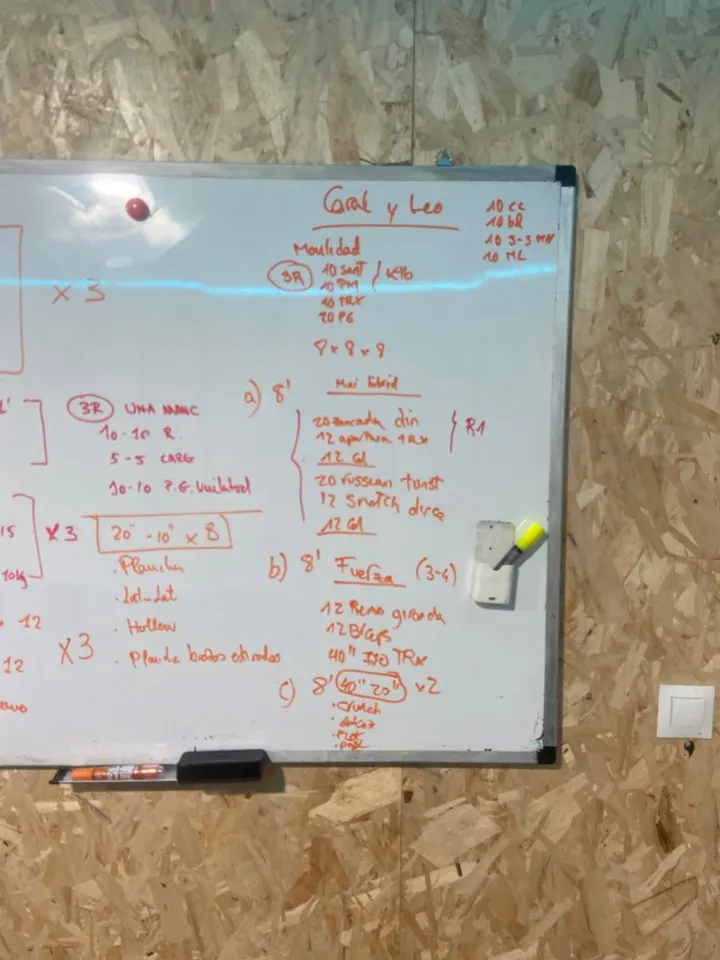 x 3
L'
15
10kg
12
12
x3
x3
3R UNA MANC
10-10 R.
5-5 CARG
10-10 P.G. Unilateral
20" - 10" x 8
. Plancha
. Lat-Lat
. Hollow
. Plancha brazos estirados
Coral y Leo
Movilidad
3R
10 sent
10 PM
10 TRX
20 PG
8 x 8 x 8
10 CC
10 bR
10 3-3 MN
10 ML
a) 8'
20 zancada din
12 apertura TRX
R1
12 Cal
20 russian twist
12 Snatch disco
12 Cal
b) 8' Fuerza (3-4)
12 Remo gironda
12 Biceps
40" ISO TRX
c) 8' 40" 20" x2
. Crunch